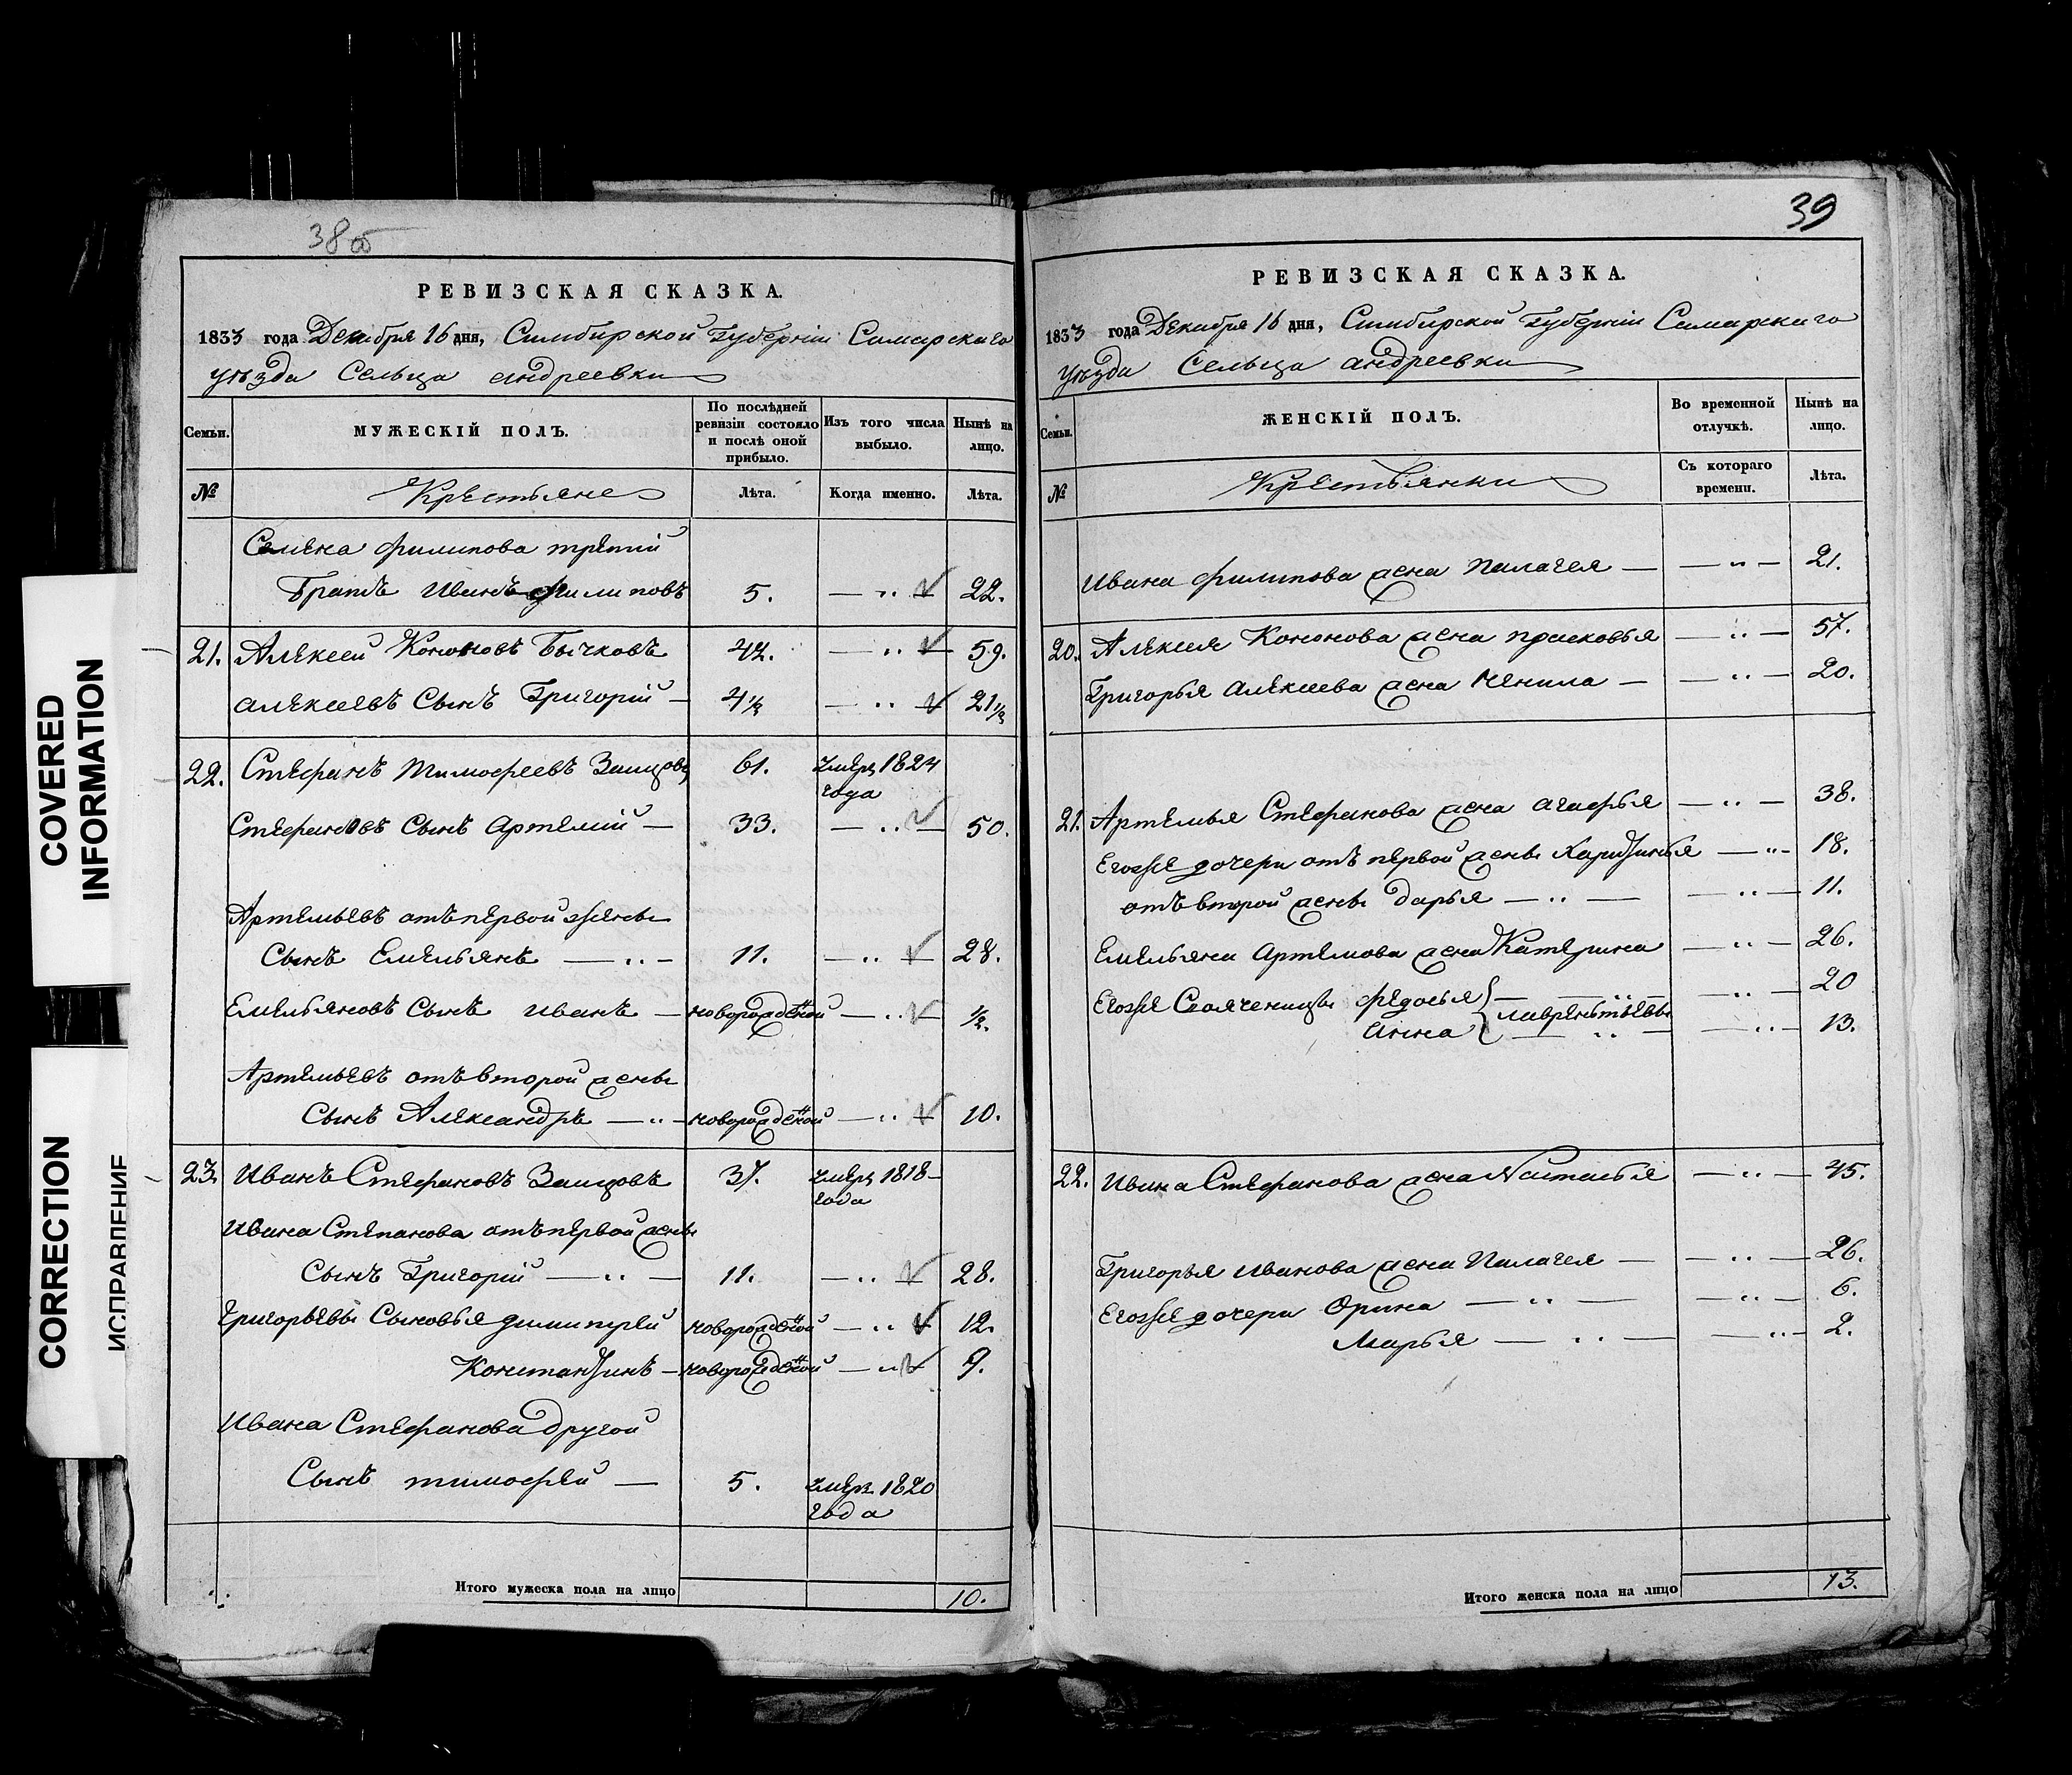 38 об
РЕВИЗСКАЯ СКАЗКА.
1833 года Декабря 16 дня, Симбирской Губернии Самарскаго
уѣзда Сельца андреевки
Семьи.
МУЖЕСКІЙ ПОЛЪ.
По послѣдней ревизіи состояло и послѣ оной прибыло.
Изъ того числа выбыло.
Нынѣ на лицо.
№
Крестьяне
Лѣта.
Когда именно.
Лѣта.
Семена филипова третий
Братъ Иванъ филиповъ 5. — " — 22.
21. Алексей Кононовъ Бычковъ 42. — " — 59.
алексеевъ Сынъ Григорий — 4½ — " — 21½
22. Стефанъ тимофеевъ Заицовъ 61. умер. 1824
года
Стефановъ Сынъ артемий — 33. — " — 50.
Артемьевъ отъ первой жены
Сынъ Емельянъ — " — 11. — " — 28.
Емельяновъ Сынъ иванъ — новорожденой — " — ½.
Артемьевъ отъ второй жены
Сынъ Александръ — " — новорожденой — " — 10.
23. Иванъ Стефановъ Заицовъ 37. умер. 1818
года
Ивана Степанова отъ первой жены
Сынъ Григорий — " — 11. — " — 28.
Григорьевы Сыновья димитрей новорожденой — " 12.
Константинъ — новорожденой — " — 9.
Ивана Стефанова другой
Сынъ тимофей — 5. умер. 1820
года
Итого мужеска пола на лицо 10.
39
РЕВИЗСКАЯ СКАЗКА.
1833 года Декабря 16 дня, Симбирской Губернии Самарскаго
уѣзда Сельца андреевки
Семьи.
ЖЕНСКІЙ ПОЛЪ.
Во временной отлучкѣ.
Нынѣ на лицо.
№
Крестьянки
Съ котораго времени.
Лѣта.
Ивана филипова жена палагея — — " — 21.
20. Алексея Кононова жена прасковья — " — 57.
Григорья алексеева жена Ненила — — " — 20.
21. Артемья Стефанова жена агафья — " — 38.
Егоже дочери отъ первой жены Харитинья — " — 18.
отъ второй жены дарья — " — — " — 11.
Емельяна артемова жена Катерина — " — 26.
Егоже Своячены федосья — " — — " — 20
анна лаврентьевы — " — — " — 13.
22. Ивана Стефанова жена Наталья — " — 45.
Григорья иванова жена Палагея — — " — 26.
Егоже дочери Орина — " — — " — 6.
Марья — " — — " — 2.
Итого женска пола на лицо 13.
COVERED
INFORMATION
CORRECTION
ИСПРАВЛЕНИЕ